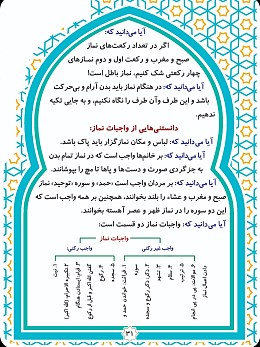 آیا می‌دانید که:
اگر در تعداد رکعت‌های نماز
صبح و مغرب و رکعت اول و دوم نمازهای
چهار رکعتی شک کنیم، نماز باطل است!
آیا می‌دانید که: در هنگام نماز باید بدن آرام و بی‌حرکت
باشد و این طرف و آن طرف را نگاه نکنیم، و به جایی تکیه
ندهیم.
دانستنی‌هایی از واجبات نماز:
آیا می‌دانید که: لباس و مکان نمازگزار باید پاک باشد.
آیا می‌دانید که: بر خانم‌ها واجب است که در نماز تمام بدن
به جز گردی صورت و دست‌ها و پاها تا مچ را بپوشانند.
آیا می‌دانید که: بر مردان واجب است «حمد» و سوره «توحید» نماز
صبح و مغرب و عشاء را بلند بخوانند، همچنین بر همه واجب است که
این دو سوره را در نماز ظهر و عصر آهسته بخوانند.
آیا می‌دانید که: واجبات نماز دو قسمت است:
واجبات نماز
واجب رکنی:
واجب غیر رکنی:
۱. نیت
۴. رکوع
۵. سجده
۳. سلام
۴. تشهد
۵. ترتیب
۳۱